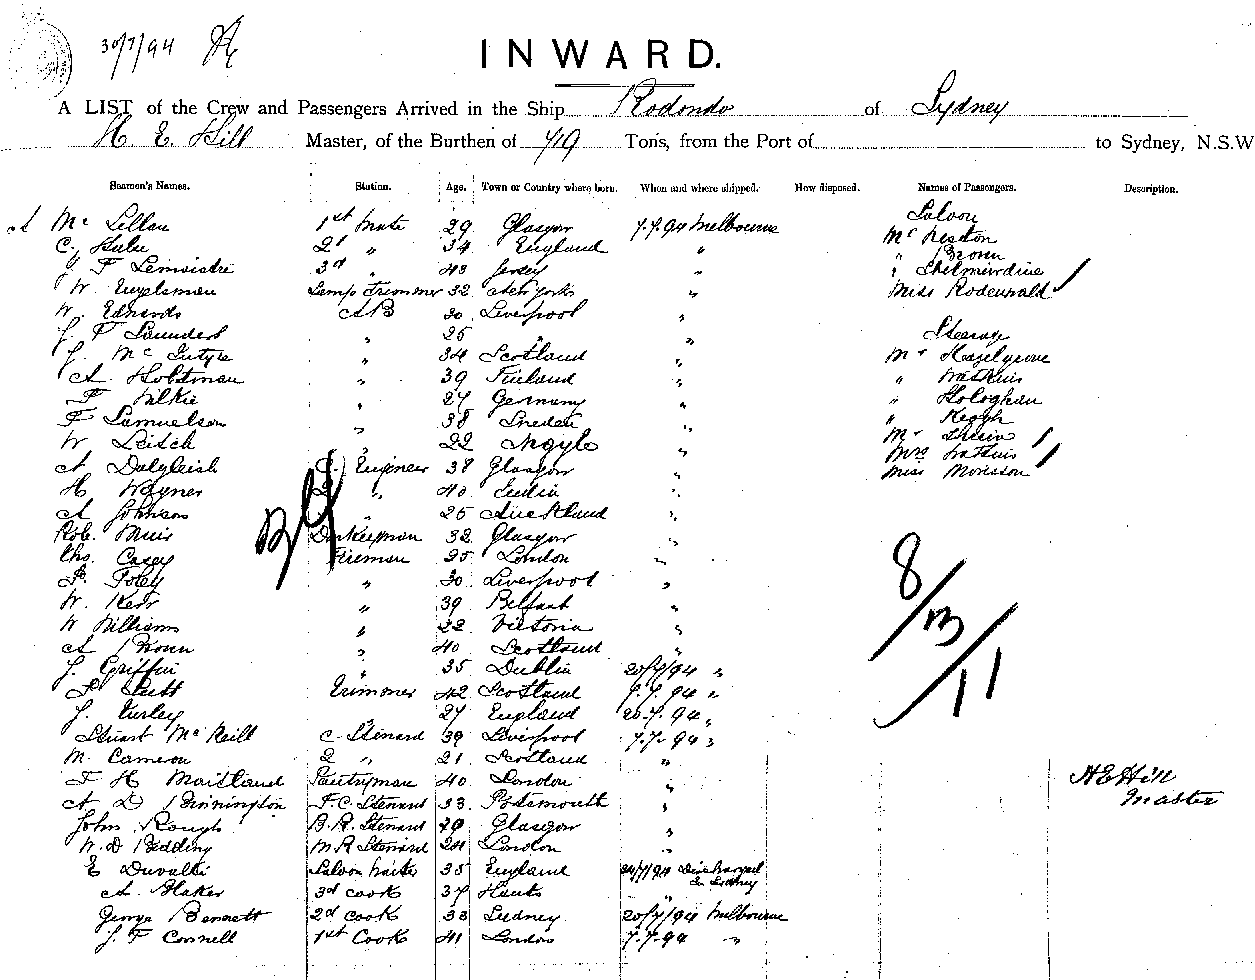 30/7/94
INWARD.
A LIST of the Crew and Passengers Arrived in the Ship Rodondo of Sydney
H. E. Hill Master, of the Burthen of 719 Tons, from the Port of to Sydney, N.S.W
Seamen's Names. Station. Age. Town or Country where born. When and where shipped. How disposed. Names of Passengers. Description.
Saloon
A Mc Lellan 1st Mate 29 Glasgow 7.7.94 Melbourne
C. 2d " 34 England "
J. F 3d " 43 Jersey "
W. Engelsman Lamp Trimmer 32 New York "
W. Edwards AB 30 Liverpool "
J. F Saunders " 25 " "
J. Mc Intyre " 34 Scotland "
A Holstman " 39 Finland "
F Wilkie " 27 Germany "
F Samuelson " 38 Sweden "
W Leitch " 22 Argyle "
A Dalgleish Engineer 38 Glasgow "
H Wagner 2 " 40 India "
A Johnson " 25 Auckland "
Rob. Muir Donkeyman 32 Glasgow "
Chs. Casey Fireman 35 London "
P. Foley " 30 Liverpool "
W. Kerr " 39 Belfast "
W Williams " 22 Victoria "
A Brown " 40 Scotland "
J. Griffin " 35 Dublin 20/7/94 "
Trimmer 42 Scotland 7.7.94 "
J. Turley " 27 England 20.7.94 "
Stuart Mc Neill C Steward 39 Liverpool 7.7.94 "
M. Cameron 2 " 21 Scotland "
F H Maitland Pantryman 40 London "
A D Bennington F.C. Steward 33 Portsmouth "
John Rough B.R. Steward 29 Glasgow "
W. D Redding M R Steward 24 London "
E Duvalli Saloon Waiter 35 England 24/7/94 Discharged
In Sydney
A. Blaker 3rd Cook 37 Hants "
George Bennett 2d Cook 33 Sydney 20/7/94 Melbourne
J. F Connell 1st Cook 41 London 7.7.94 "
Mr
" Brown
" Shelmerdine
Miss Rodenwald
Steerage
Mr Hazelgrove
" Watkins
" Hologhan
" Keogh
Mr
Mrs Watkins
Miss Morrison
8/13/11
H E Hill
Master